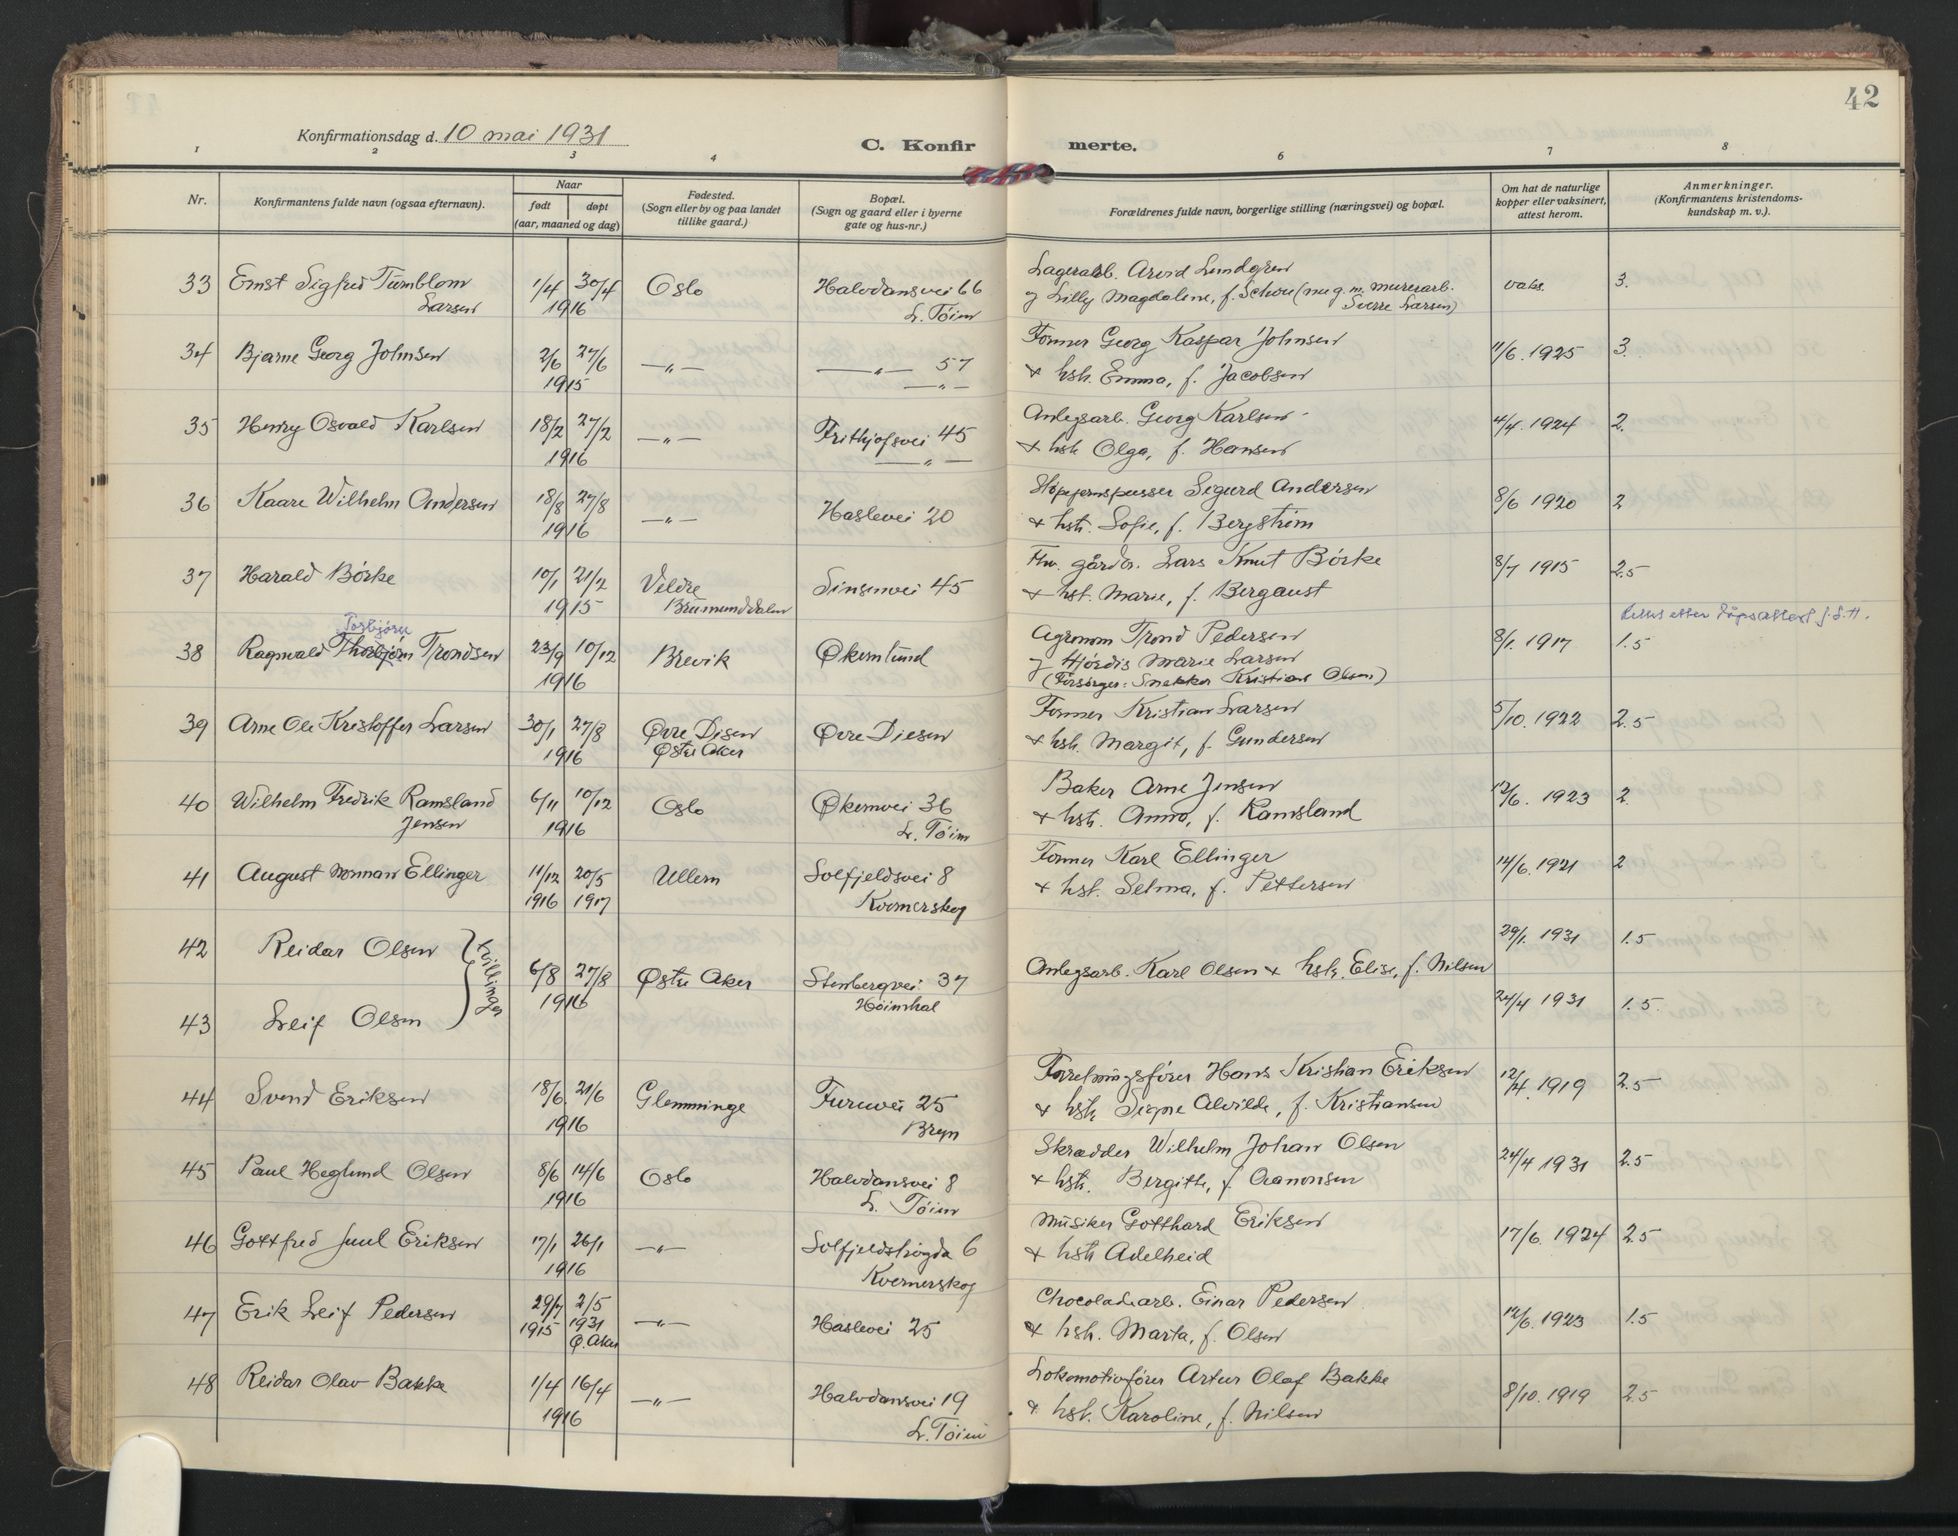 42
Konfirmationsdag d. 10 mai 1931
C. Konfirmerte.
1 2 3 4 6 7 8
Nr.
Konfirmantens fulde navn (ogsaa efternavn).
Naar
født døpt
(aar, maaned og dag)
Fødested.
(Sogn eller by og paa landet
tillike gaard.)
Bopæl.
(Sogn og gaard eller i byerne
gate og hus-nr.)
Forældrenes fulde navn, borgerlige stilling (næringsvei) og bopæl.
Om hat de naturlige
kopper eller vaksinert,
attest herom.
Anmerkninger.
(Konfirmantens kristendoms-
kundskap m. v.).
33 Ernst Sigfred Turnblom 1/4 30/4 Oslo Halvdansvei 66 Lagerarb. Arvid Lundgren vaks. 3.
Larsen 1916 L. Tøien og Lilly Magdalene, f. Schou (nu g. m. murerarb.
Sverre Larsen)
34 Bjarne Georg Johnsen 2/6 27/6 —"— —"— 57 Former Georg Kaspar Johnsen 11/6. 1925 3.
1915 —"— + hstr. Emma, f. Jacobsen
35 Henry Osvald Karlsen 18/2 27/2 —"— Frithjofsvei 45 Anlegsarb. Georg Karlsen 4/4. 1924 2.
1916 —"— + hstr Olga, f. Hansen
36 Kaare Wilhelm Andersen 18/8 27/8 —"— Haslevei 20 Støpejernspusser Sigurd Andersen 8/6 1920 2
1916 + hstr. Sofie, f. Bergstrøm
37 Harald Børke 10/1 21/2 Veldre Sinsenvei 45 Fhv. gårdbr. Lars Knut Børke 8/7 1915 2.5
1915 Brumunddalen + hst. Marie, f. Bergaust
Torbjørn
rettet efter dåpsattest
38 Ragnvald Thorbjørn Trondsen 23/9 10/12 Brevik Økernlund Agronom Trond Pedersen 8/1. 1917 1.5
1916 og Hjørdis Marie Larsen
(Forsørger: Snekker Kristian Olsen)
39 Arne Ole Kristoffer Larsen 30/1 27/8 Øvre Disen Øvre Diesen Former Kristian Larsen 5/10. 1922 2.5
1916 Østre Aker + hstr. Margit, f. Gundersen
40 Wilhelm Fredrik Ramsland 6/11 10/12 Oslo Økernvei 36 Baker Arne Jensen 12/6. 1923 2.
Jensen 1916 L. Tøien + hstr. Anna, f. Ramsland
41 August Norman Ellinger 11/12 20/5 Ullern Solfjeldsvei 8 Former Karl Ellinger 14/6. 1921 2
1916 1917 Kvernerskog + hst. Selma, f. Pettersen
42 Reidar Olsen 29/1. 1931 1.5
Tvillinger 6/8 27/8 Østre Aker Stenbergvei 37 Anlegsarb. Karl Olsen + hstr. Elise, f. Nilsen
1916 Høienhal
43 Leif Olsen 24/4 1931 1.5.
44 Svend Eriksen 18/6 21/6 Glemminge Furuvei 25 Forretningsfører Hans Kristian Eriksen 12/4. 1919 2.5
1916 Bryn + hstr Signe Alvilde, f. Kristiansen
45 Paul Heglund Olsen 8/6 14/6 Oslo Halvdansvei 8 Skrædder Wilhelm Johan Olsen 24/4 1931 2.5
1916 L. Tøien + hstr. Bergitte, f. Aamonsen
46 Gottfred Juul Eriksen 17/1 26/1 —"— Solfjeldshøgda 6 Musiker Gotthard Eriksen 17/6. 1924 2.5
1916 Kvernerskog + hstr Adelheid
47 Erik Leif Pedersen 29/7 2/5 —"— Haslevei 25 Chocoladearb. Einar Pedersen 12/6. 1923 1.5
1915 1931 + hstr. Marta, f. Olsen
Ø. Aker
48 Reidar Olav Bakke 1/4 16/4 —"— Halvdansvei 19 Lokomotivfører Artur Olaf Bakke 8/10. 1919 2.5
1916 L. Tøien + hstr. Karoline, f. Nilsen